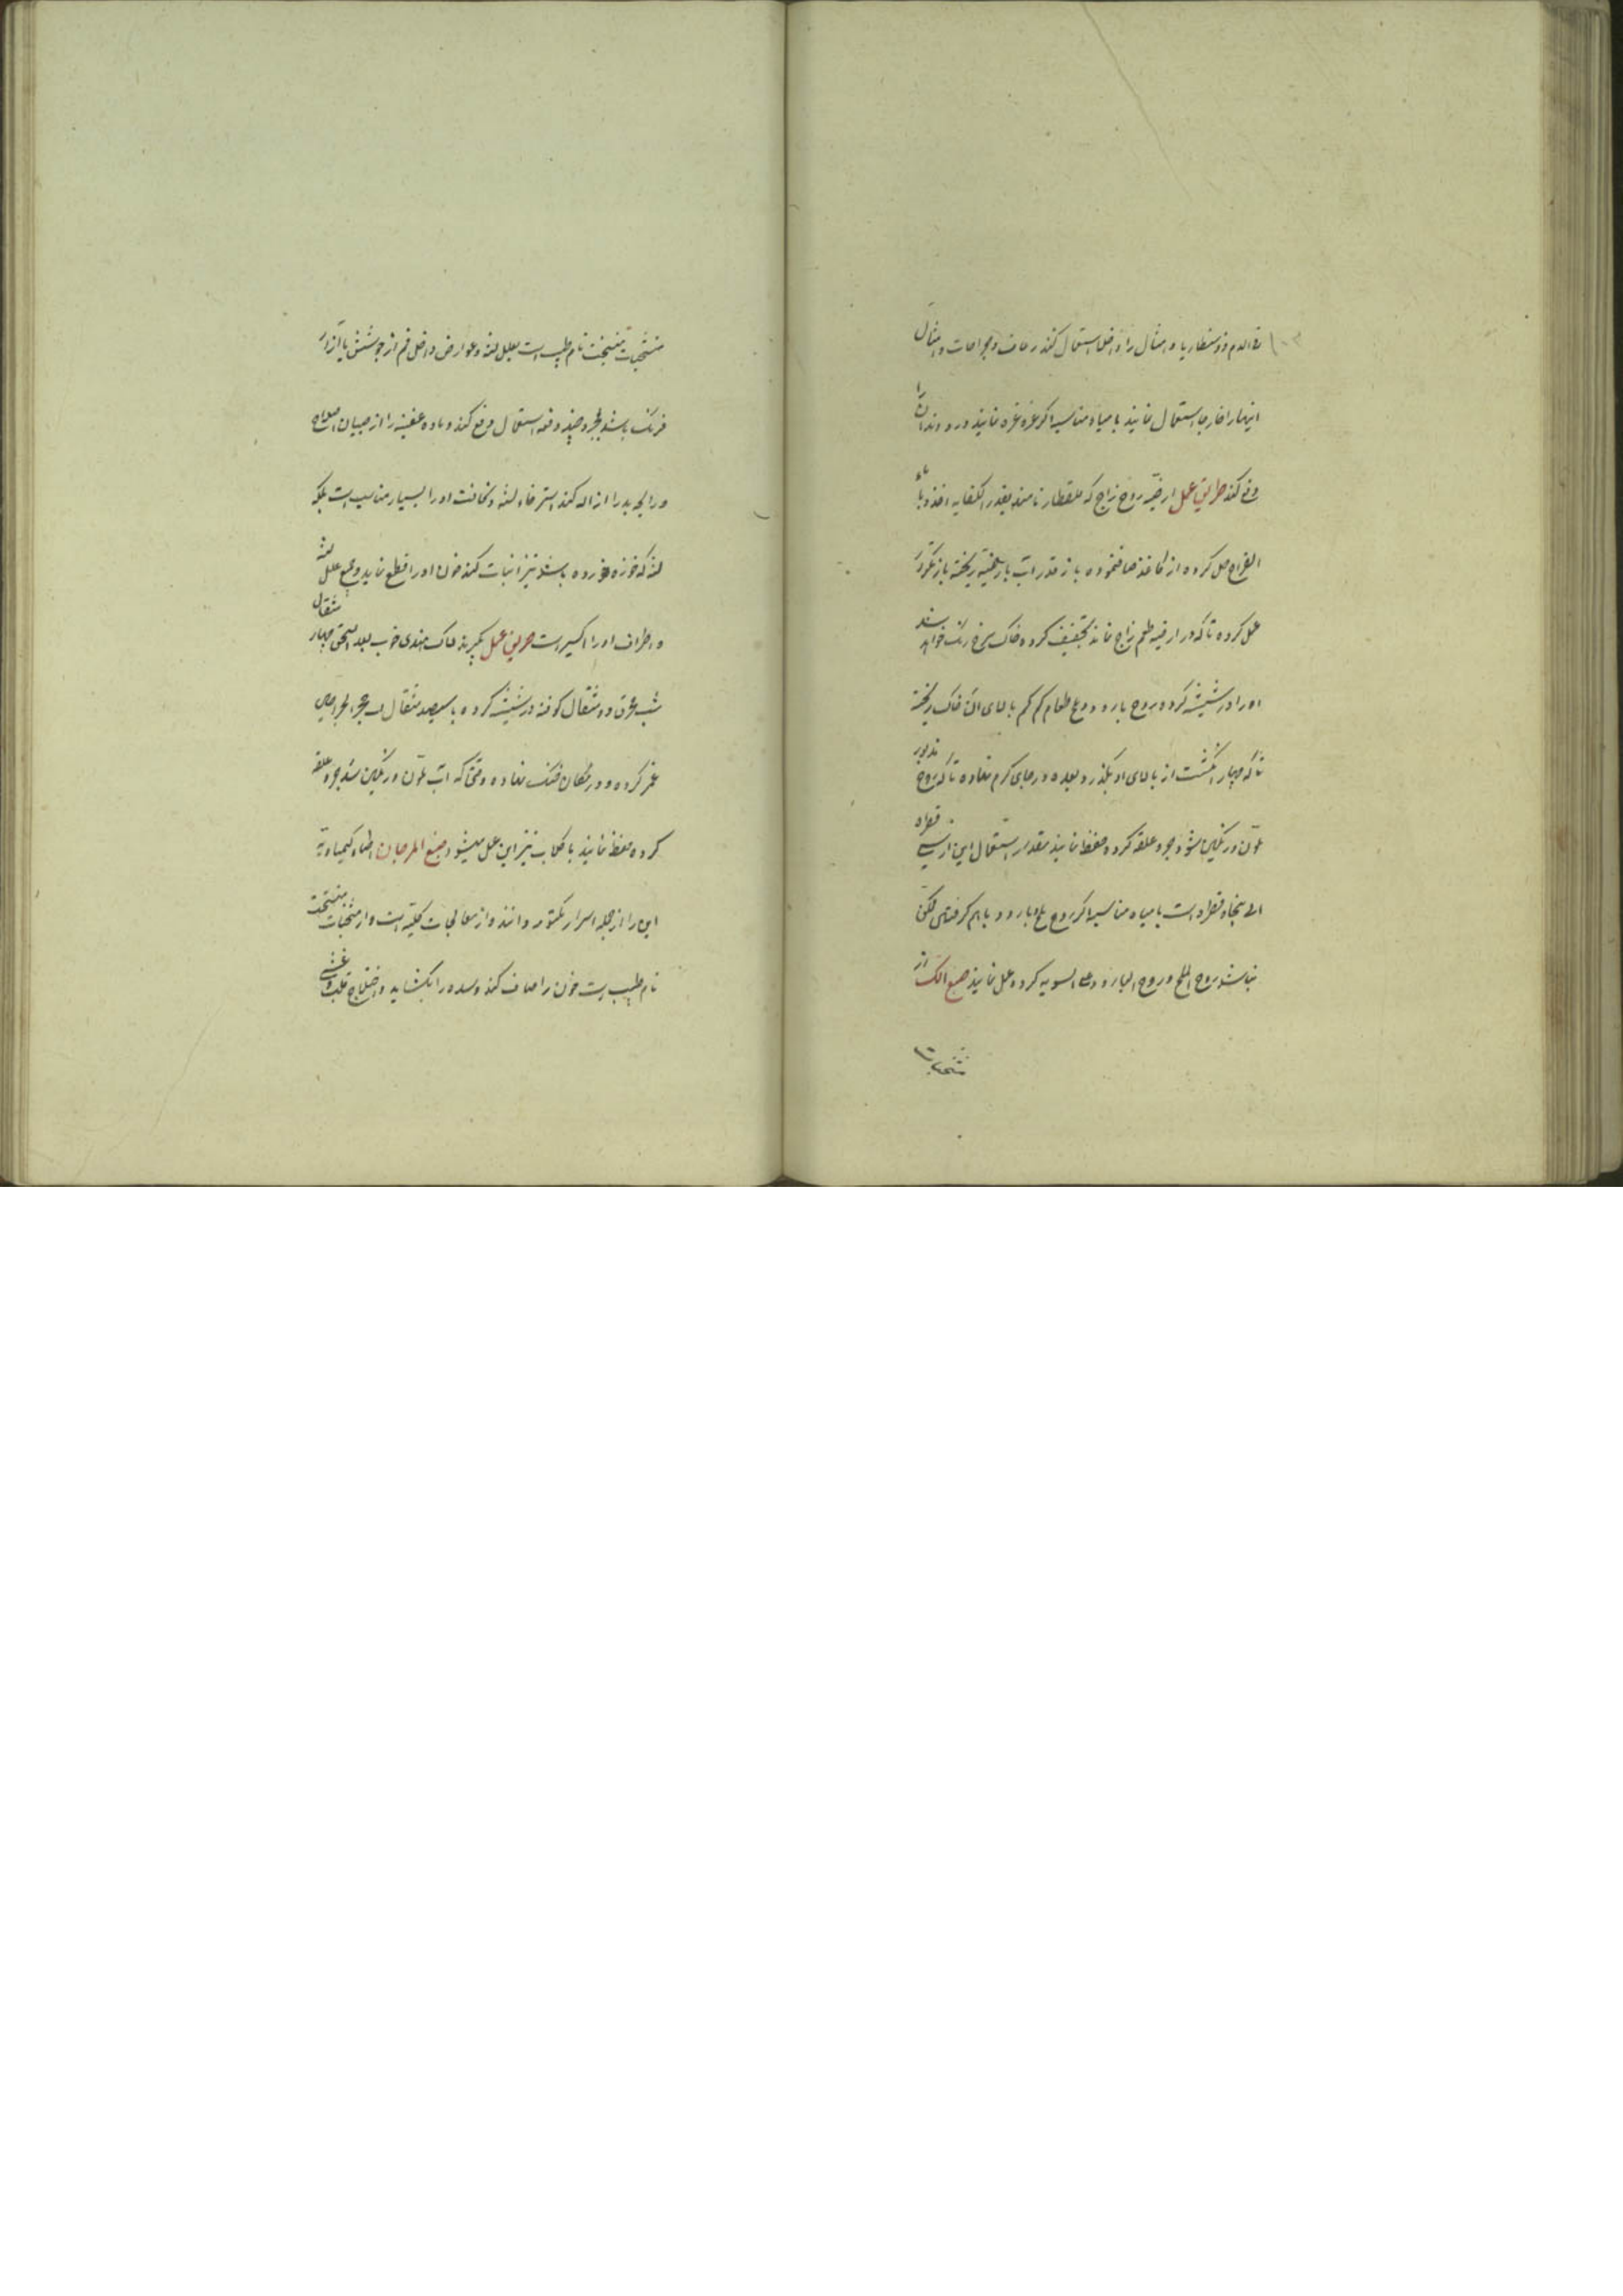 الدم و دوسنطاریا و امثال را داخلا استعمال کنند رعاف و جراحات و امثال
اینها را خارجا استعمال نمایند با میاه مناسبه اکر غرغره نمایند درد دندان را
دفع کند طریق عمل ارضیه روح زاج که قلقطار نامند بقدر الکفایه اخذ و با ماء
القراح حل کرده از کاغذ صاف نموده باز قدر آب بارضیه ریخته باز مکرر
عمل کرده تا که در ارضیه طعم زاج نماند تجفیف کرده خاک سرخ رنک خواهد شد
او را در شیشه کرده روح بارود و ملح طعام کم کم بالای آن خاک ریخته
تا که چهار انکشت از بالای او بگذرد بعده در جای کرم نهاده تا که روح مذبور
ملون و رنکین شود جوجه علقه کرده حفظ نمایند مقدار استعمال این از سی قطره
الی پنجاه قطره است با میاه مناسبه اکر روح ملح و بارود باهم کرفتن ممکن
نباشد روح الملح و روح البارود علی السویه کرده عمل نمایند صبغ الک از
منتخبات
منتخبات نام طبیب است بعلل لثه و عوارض داخل فم از جوشش یا آزار
فرنک باشد بمجرد چند دفعه استعمال دفع کند و ماده عفینه را از میان اخراج
و رایحه بد را ازاله کند استرخاء لثه و کثافت او را بسیار مناسب است بلکه
لثه که خوره خورده باشد نیز انبات کند خون او را قطع نماید و جمیع علل لثه
و اطراف او را اکسیر است طریق عمل بکیرند لاک هندی خوب بعد السحق چهار مثقال
شب محرق دو مثقال کوفته در شیشه کرده با سیصد مثقال
غمر کرده و در مکان خنک نهاده وقتی که آب ملون و رنکین شد جوجه علقه
کرده حفظ نمایند با کلاب نیز این عمل میشود صبغ المرجان اطباء کیمیاویه
این را از جمله اسرار مکتومه دانند و از معالجات کلیه است و از منتخبات
نام طبیب است خون را صاف کند و سده را بکشاید و اختلاج قلب و غشی